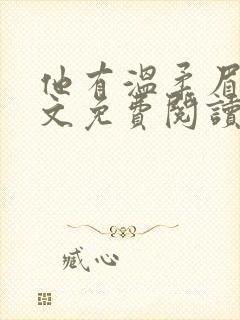 他有溫柔眉
文免費閱讀
臧心